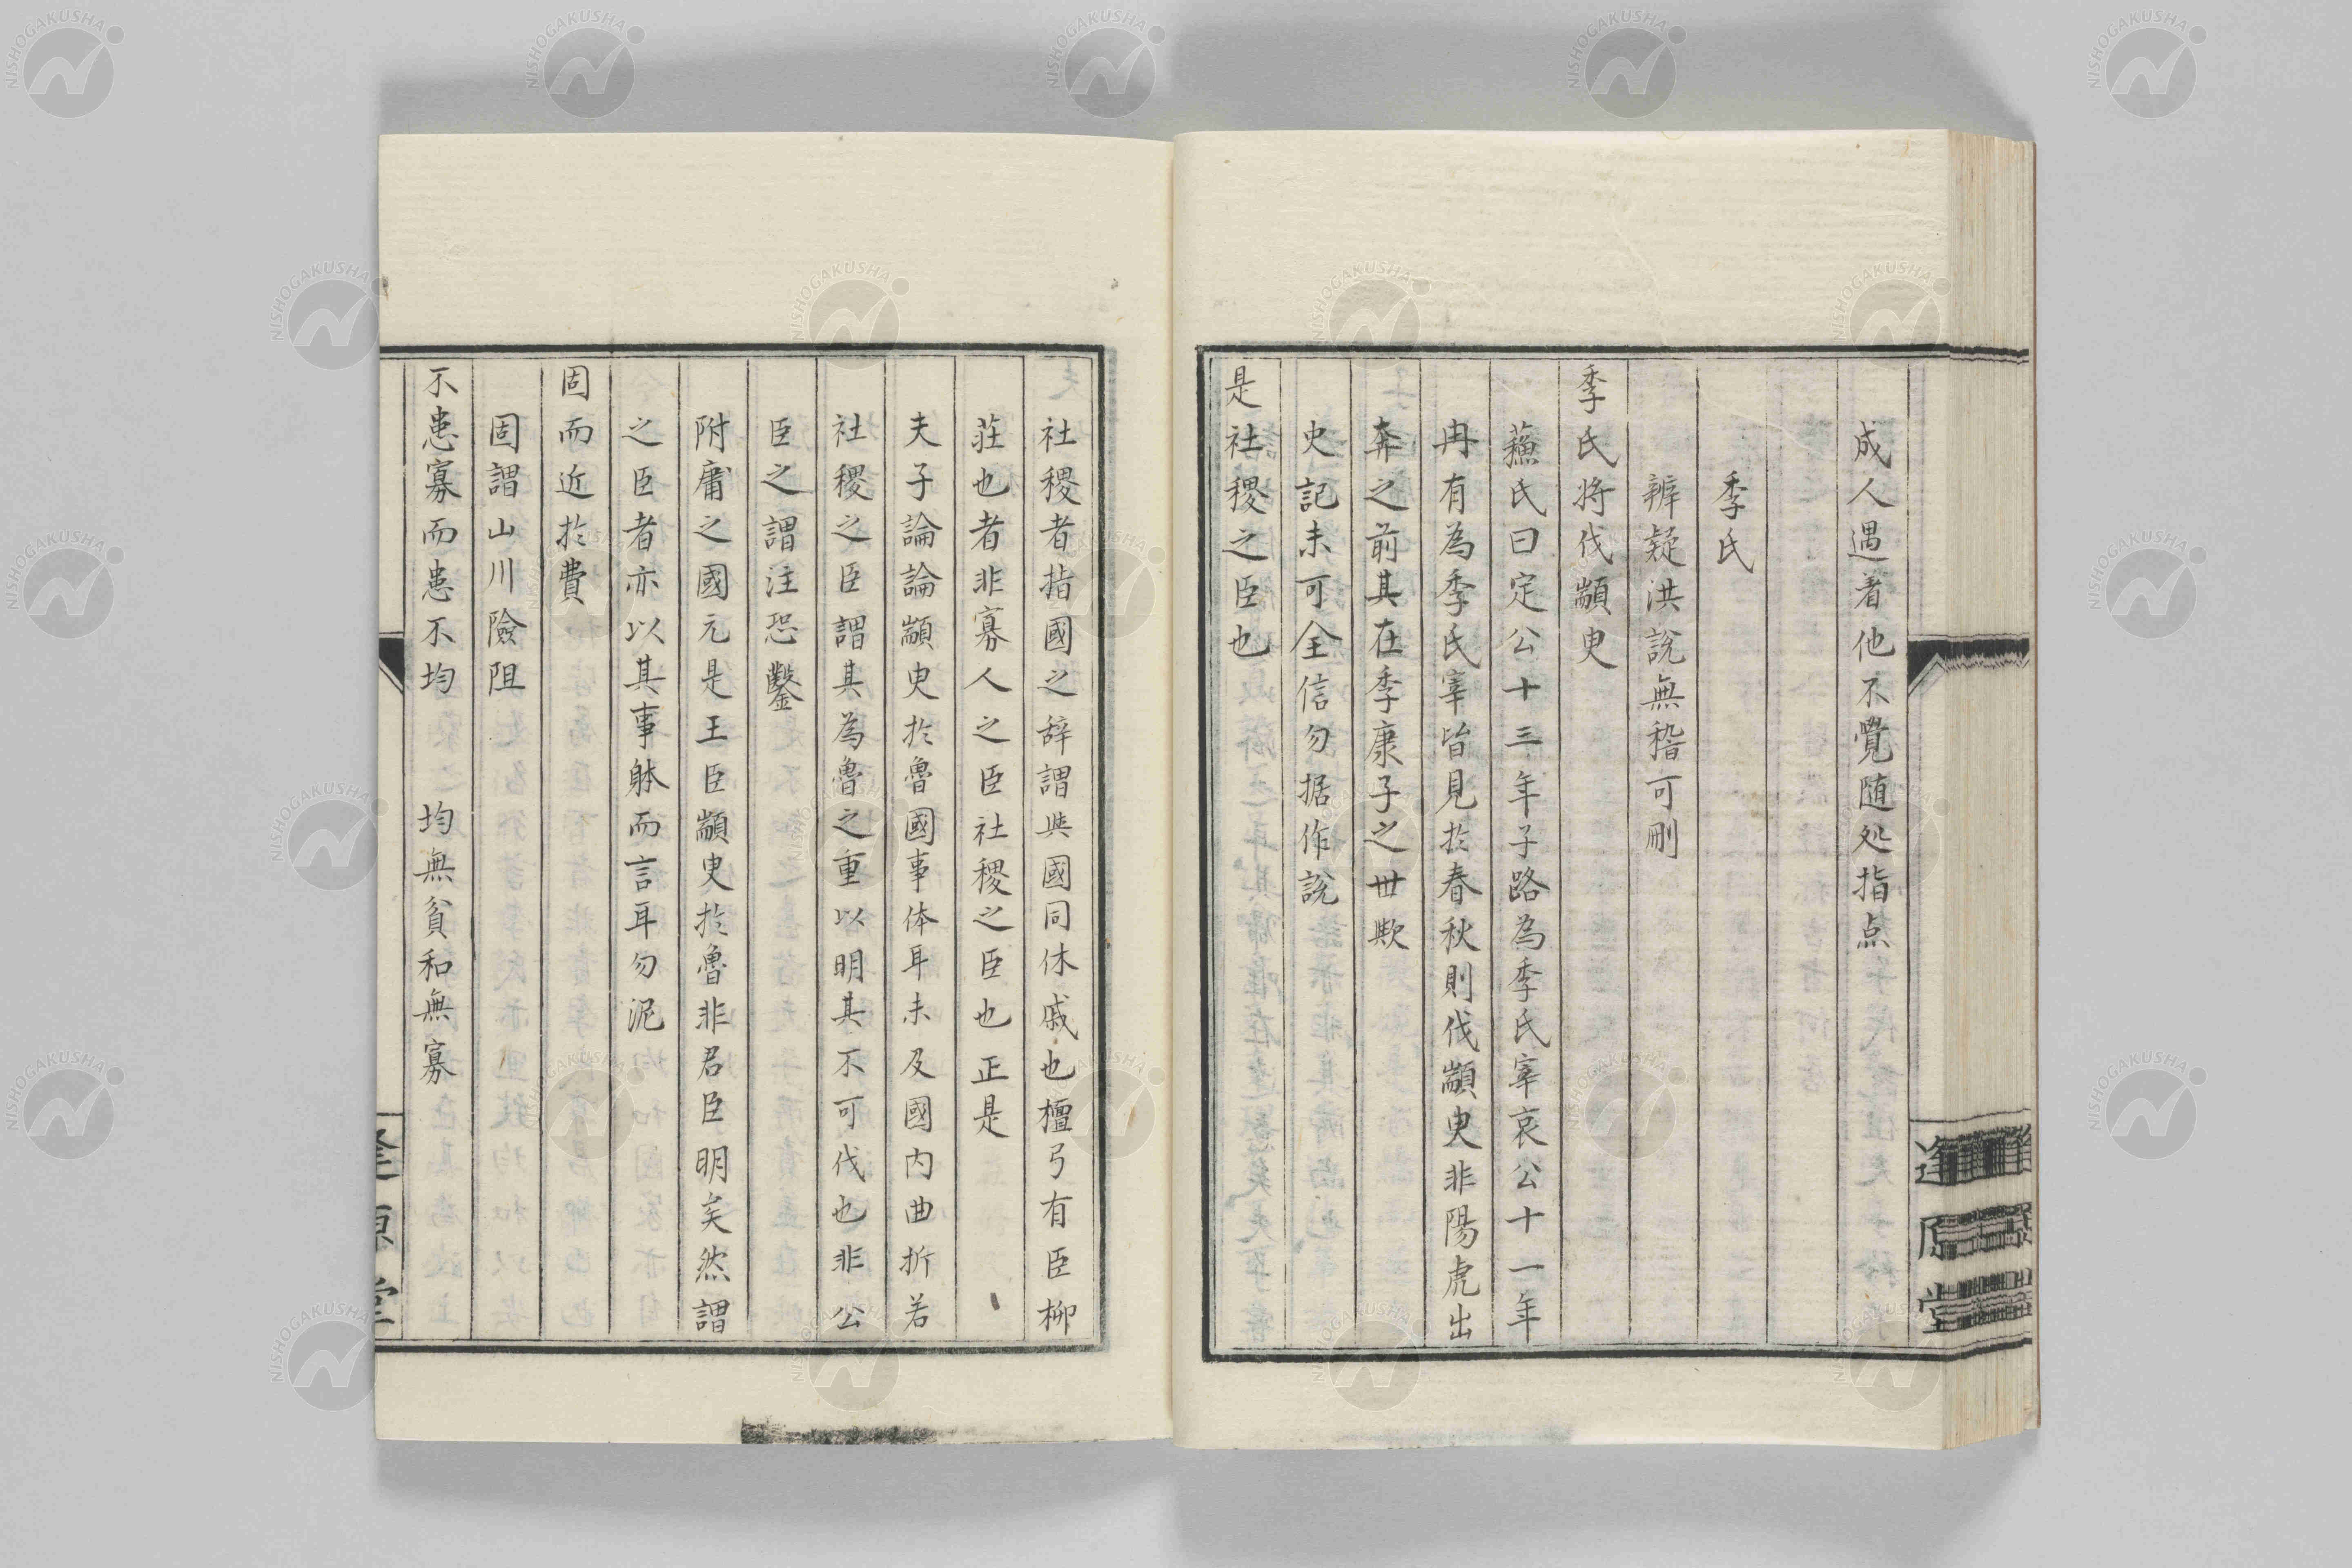 成人遇着他不覺随処指点
季氏
辨疑洪說無稽可刪
季氏将伐顓臾
蘓氏曰定公十三年子路為季氏宰哀公十一年
冉有為季氏宰皆見於春秋則伐顓臾非陽虎出
奔之前其在季康子之世歟
史記未可全信勿据作說
是社稷之臣也
逢原堂
社稷者指國之辞謂與國同休戚也檀弓有臣柳
莊也者非寡人之臣社稷之臣也正是
夫子論論顓臾於魯國事体耳未及國内曲折若
社稷之臣謂其為魯之重以明其不可伐也非公
臣之謂注恐鑿
附庸之國元是王臣顓臾於魯非君臣明矣然謂
之臣者亦以其事躰而言耳勿泥
固而近於費
固謂山川險阻
不患寡而患不均　均無貧和無寡
逢原堂
NISHOGAKUSHA